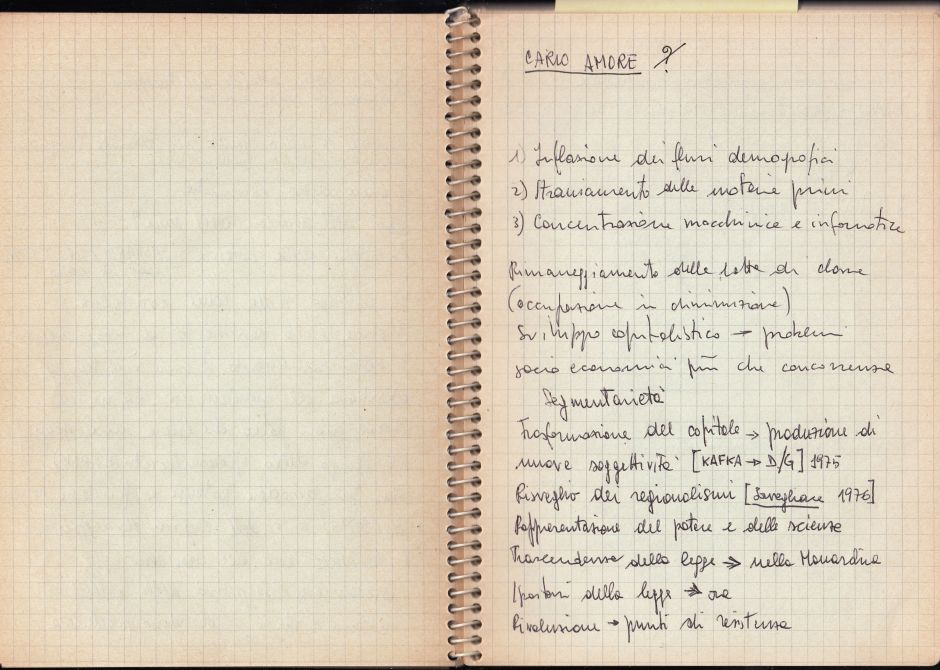 CARLO AMORE ?
1) Inflazione dei flussi demografici
2) delle materie prime
3) Concentrazione macchinica e informatica
Rimaneggiamento delle lotte di classe
(occupazione in diminuzione)
Sviluppo capitalistico → problemi
socio economici più che concorrenza
Segmentarietà
Trasformazione del capitale → produzione di
nuove soggettività [KAFKA → D/G] 1975
Risveglio dei regionalismi [ 1976]
Rappresentazione del potere e delle scienze
Trascendenza della legge → nella Monarchia
Ipostasi della legge → ora
Rivoluzione → punti di resistenza